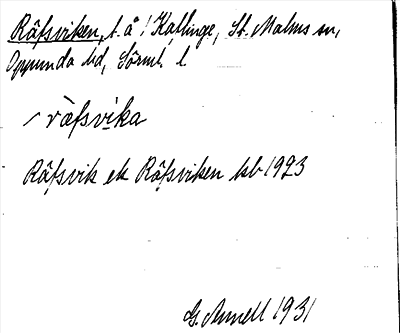 Räfsviken, t. å ! Kallinge, St. Malms sn,
Oppunda hd, Sörml. l.
räfsvika
Räfsvik ek Räfsviken kb 1923
G. Annell 1931